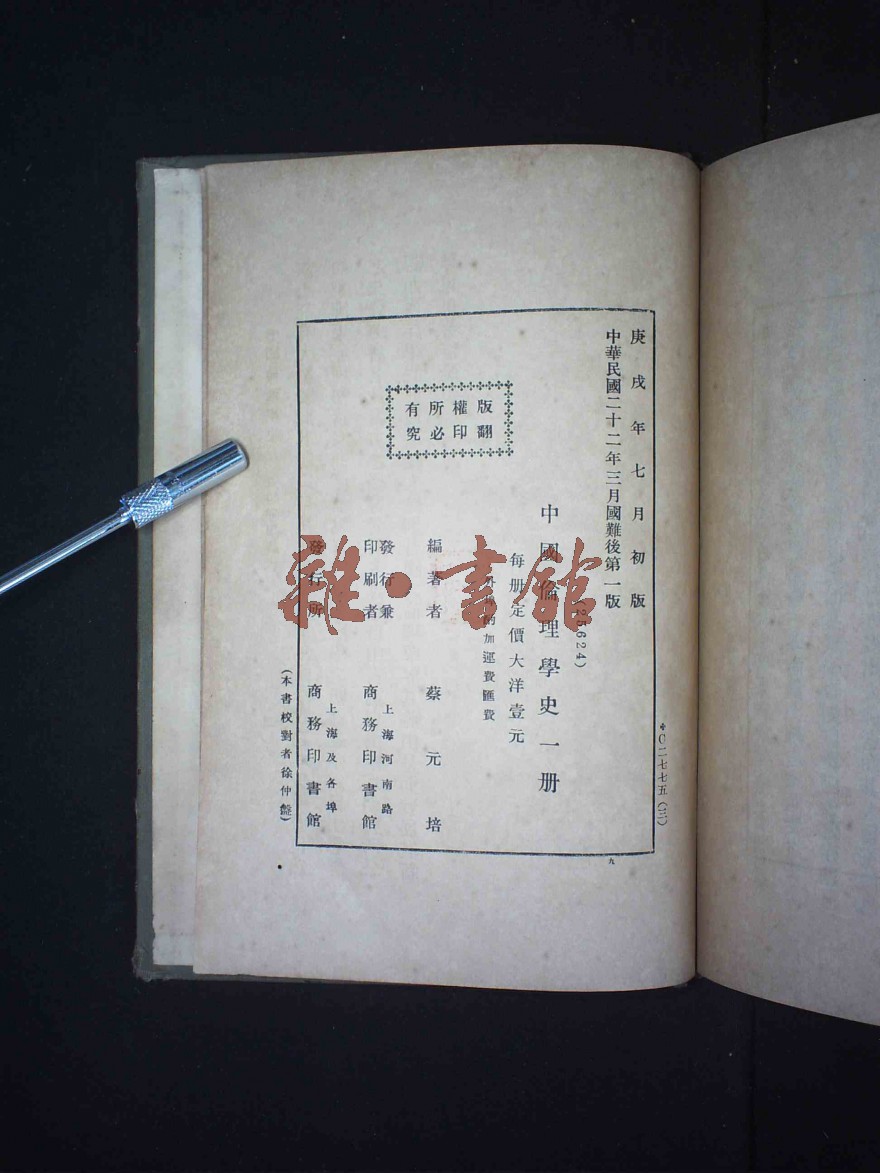 庚戌年七月初版
中華民國二十二年三月國難後第一版
(25624)
中國倫理學史一册
每册定價大洋壹元
加運費匯費
版權所有
翻印必究
編著者 蔡元培
發行兼
印刷者
上海河南路
商務印書館
發行所
上海及各埠
商務印書館
(本書校對者徐仲盤)
＊〇二七七五(三)
九
雜·書館